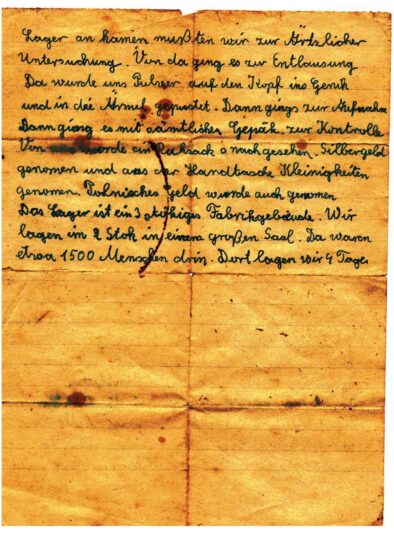 Lager an kamen mußten wir zur Ärtzlicher
Untersuchung. Von da ging es zur Entlausung
Da wurde uns Pulver auf den Kopf ins Genik
und in die Ärmel gepustet. Dann gings zur Aufnahme
Dann ging es mit sämtlichen Gepäk zur Kontrolle
Von wurde ein Rucksack nachgesehen. Silbergeld
genomen und aus der Handtasche Kleinigkeiten
genomen. Polnisches Geld wurde auch genomen
Das Lager ist ein 3 stökiges Fabrikgebäude. Wir
lagen in 2 Stok in einem großen Saal. Da waren
etwa 1500 Menschen drin. Dort lagen wir 4 Tage